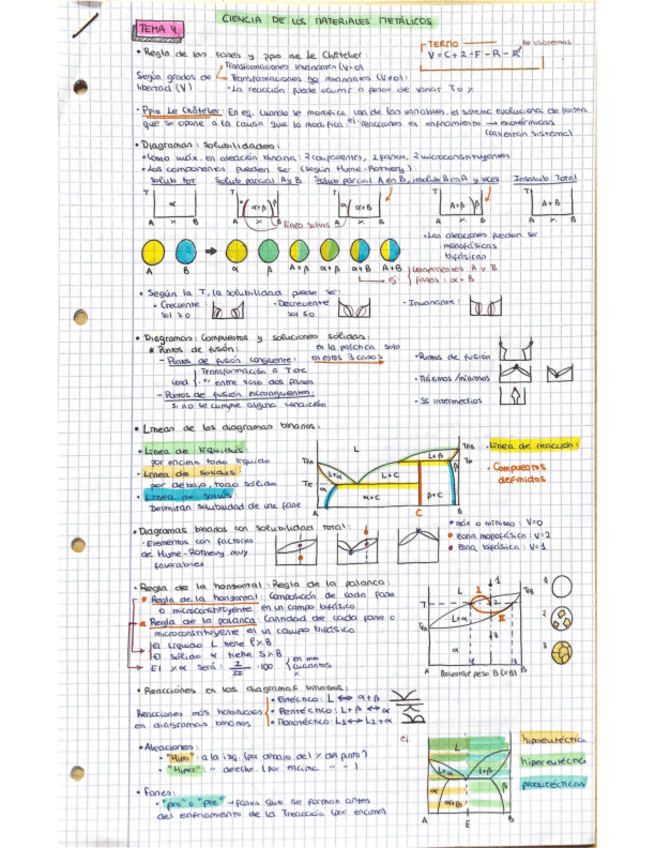 CIENCIA DE LOS MATERIALES METÁLICOS
TEMA 4
• Regla de las fases y ppio de Le Châtelier
TERMO
no usaremos
V = C + 2 - F - R - R'
Según grados de
libertad (V)
Transformaciones invariantes (V=0)
Transformaciones no invariantes (V≠0):
• La reacción puede ocurrir a pesar de variar T o x
• Ppio Le Châtelier: En eq. cuando se modifica una de las variables, el sistema evoluciona de forma
que se opone a la causa que lo modifica. Reacciones en enfriamiento → exotérmicas
(calientan sistema)
• Diagramas: solubilidades:
• Como máx. en aleación binaria: 2 componentes, 2 fases, 2 microconstituyentes
• Los componentes pueden ser (según Hume-Rothery):
Solub tot Solub parcial A y B Solub parcial A en B, insolub B en A y vcev. Insolub Total
T T T T T
α (α+β) α+B A+β A+B
A x B A x B A x B A x B A x B
línea solvus
A B α β A+β α+β α+B A+B
• Las aleaciones pueden ser
monofásicas
bifásicas
ej componentes: A y B
fases: α+B
• Según la T, la solubilidad puede ser:
• Creciente:
sol ≥ 0
• Decreciente:
sol ≤ 0
• Invariante:
• Diagramas: Compuestos y soluciones sólidas:
* Puntos de fusión:
- Puntos de fusión congruente:
en la práctica solo
en estos 3 casos
Transformación a T cte
cond
" entre solo dos fases
- Puntos de fusión incongruentes:
si no se cumple alguna condición
• Puntos de fusión
• Máximos/mínimos
• SS intermedios
• Líneas de los diagramas binarios:
• Línea de líquidus:
por encima todo líquido
• Línea de solidus:
por debajo, todo sólido
• Línea de solvus
Delimitan solubilidad de una fase
L
TFA
L+α
L+C
L+β
TFB
Te
α
α+C
β+C
β
A C B
• Línea de reacción:
• Compuestos
definidos
• Diagramas binarios con solubilidad total:
• Elementos con factores
de Hume-Rothery muy
favorables
• máx o mínimo: V=0
• zona monofásica: V=2
• zona bifásica: V=1
• Regla de la horizontal. Regla de la palanca
* Regla de la horizontal: Composición de cada fase
o microconstituyente en un campo bifásico
* Regla de la palanca: Cantidad de cada fase o
microconstituyente en un campo bifásico
El líquido L tiene l% B
El sólido α tiene S% B
El %α será: I/II · 100
en mm
cuadritos
%
T
TFB
TFA
L+α
α
I
II
1
2
3
A B
1
2
3
• Reacciones en los diagramas binarios:
Reacciones más habituales
en diagramas binarios
• Eutéctico: L ↔ α+β
• Peritéctico: L+β ↔ α
• Monotéctico: L1 ↔ L2+α
• Aleaciones:
• "Hipo": a la izq. (por debajo del % del punto)
• "Hiper": " derecha (por encima " " ")
• Fases:
• "pro" o "pre" → fases que se forman antes
del enfriamiento de la reacción (por encima)
ej
L
L+α
L+β
α
β
α+β
A E B
hipoeutéctica
hipereutéctica
proeutécticas